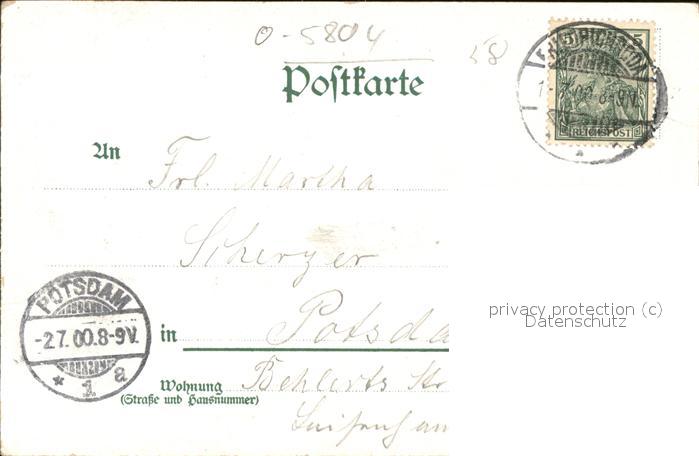 0-5804
58
Postkarte
5 5
REICHSPOST
An
Frl. Martha
Scherzer
POTSDAM
-2.7.00.8-9V.
* 1 a
in Potsda
Wohnung Behlerts Str
(Straße und Hausnummer)
privacy protection (c)
Datenschutz